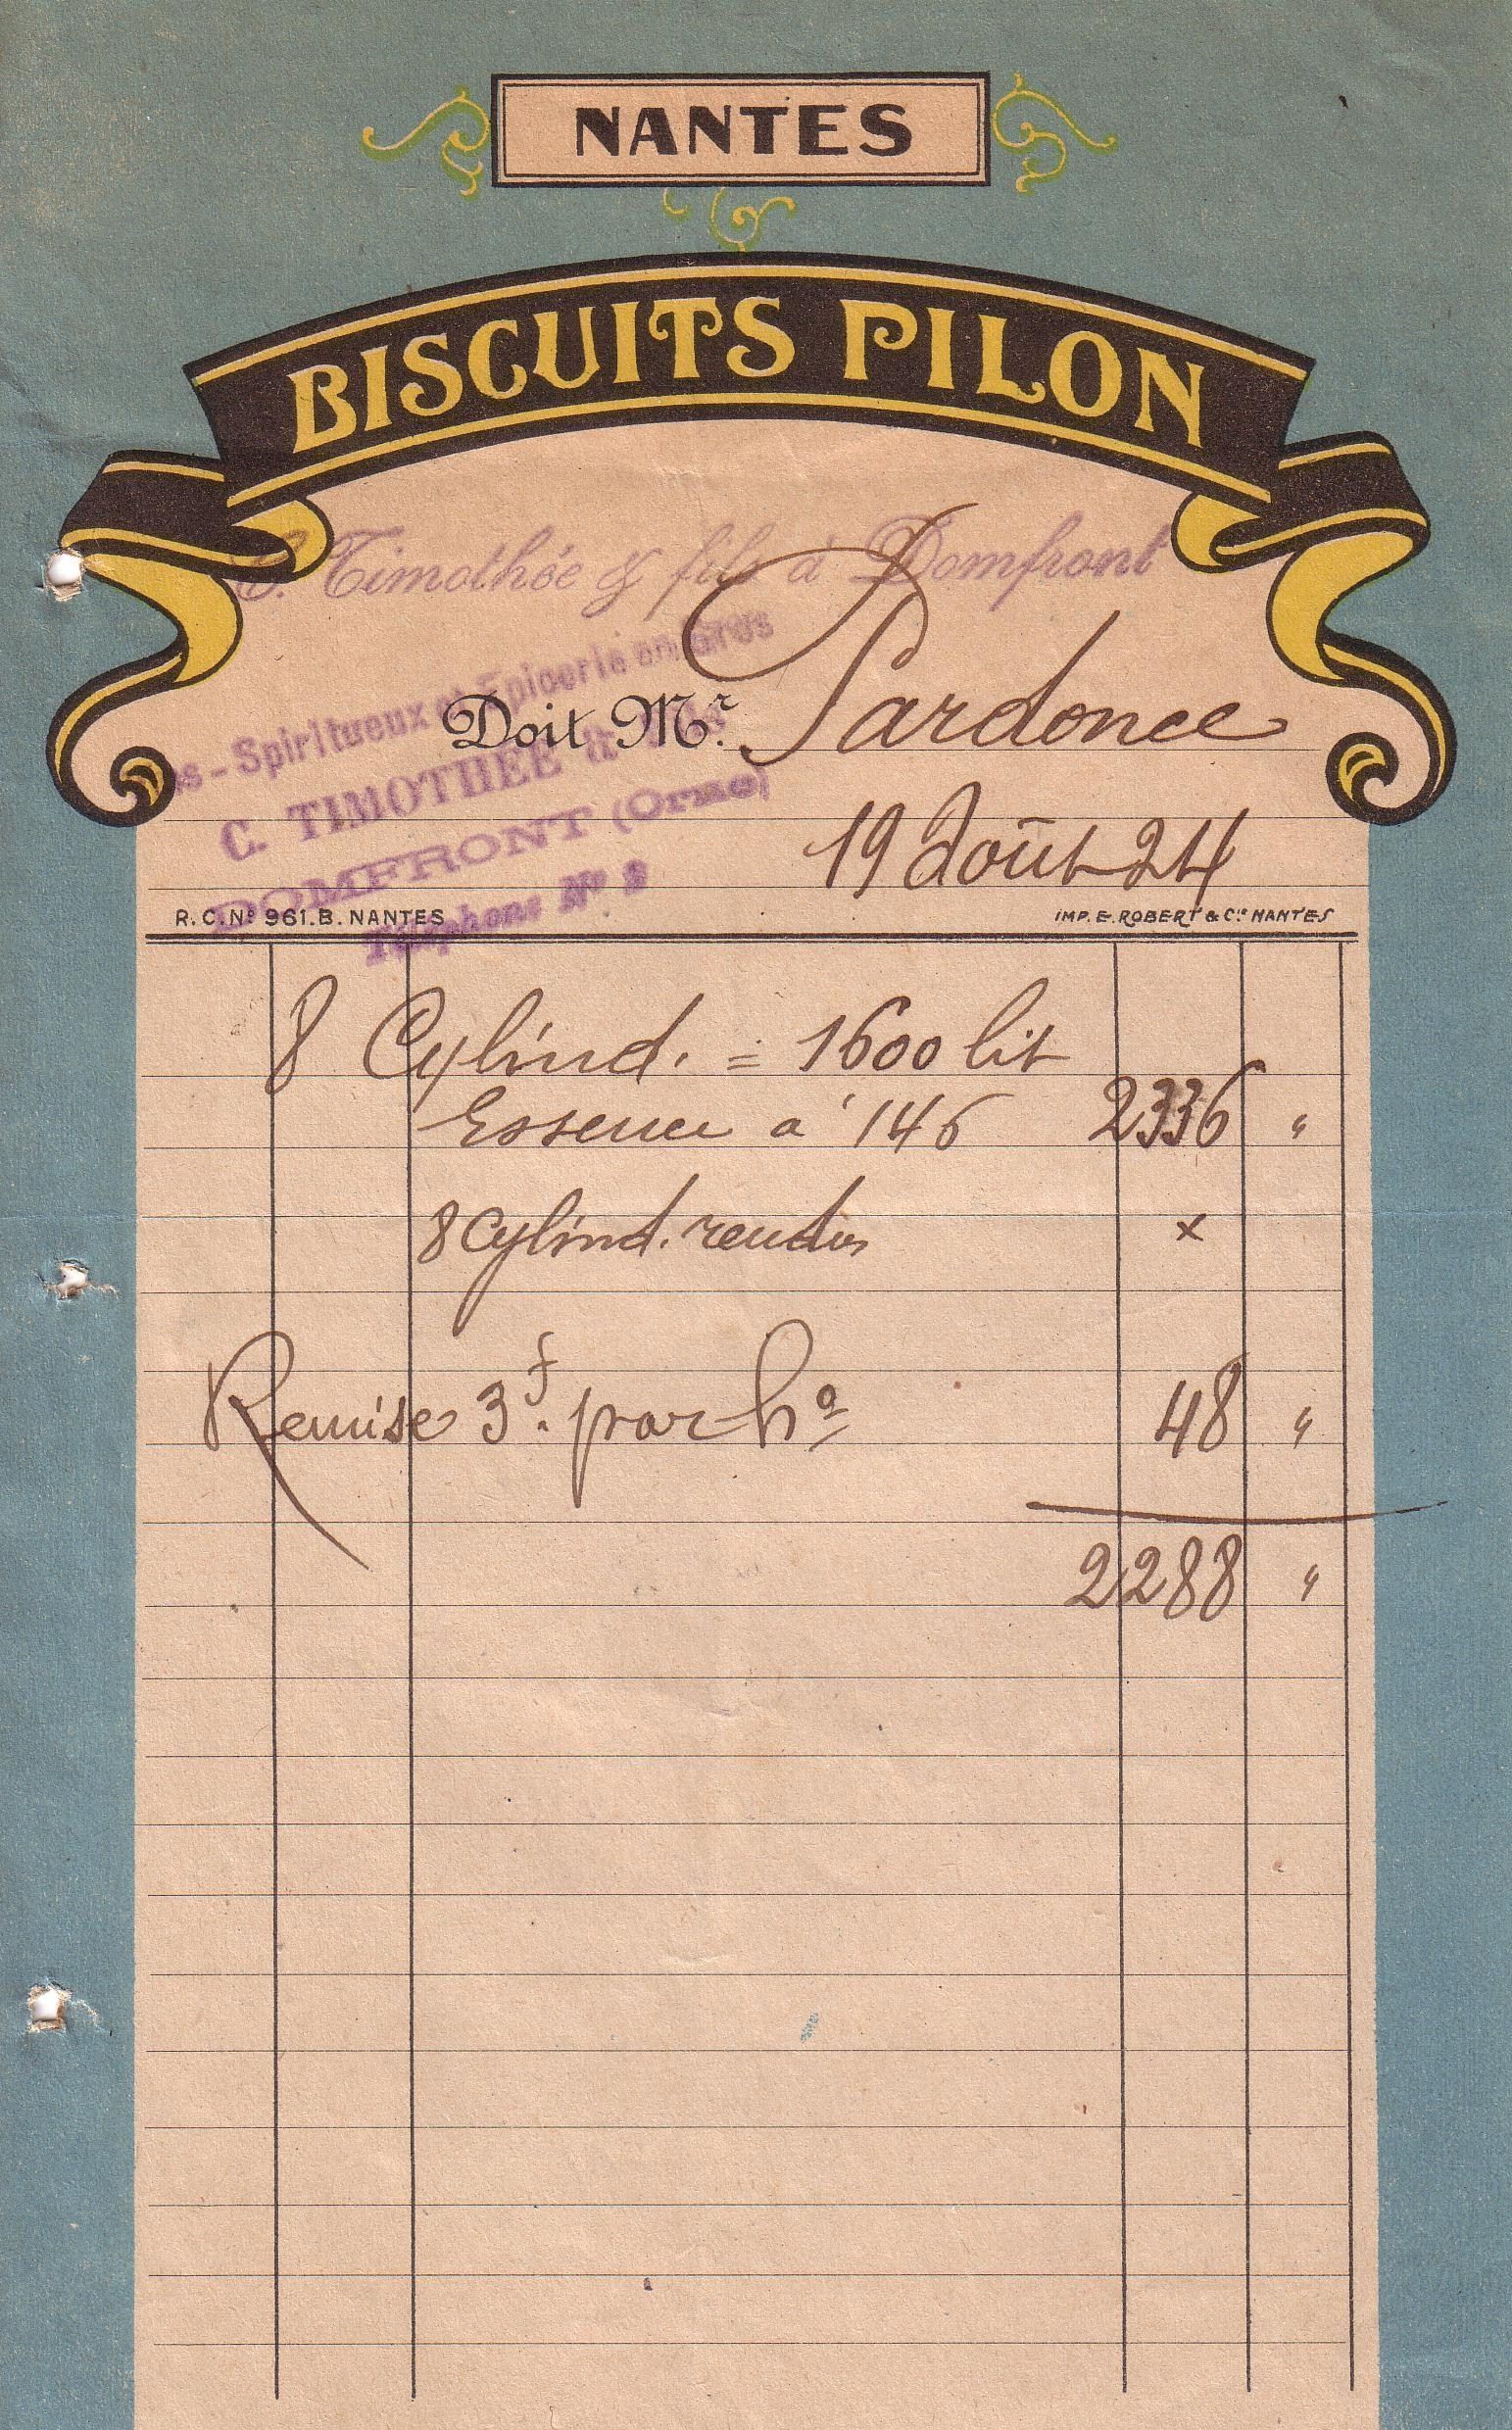 NANTES
BISCUITS PILON
C. Timothée & fils à Domfront
Spiritueux et Epicerie en Gros
Doit Mr. Pardonce
C. TIMOTHEE &
DOMFRONT (Orne)
19 Août 24
Téléphone No 2
R.C. No 961.B. NANTES
IMP. E. ROBERT & Cie NANTES
8 Cylind. = 1600 lit
Essence a 146 2336 "
8 Cylind. rendus x
Remise 3f. par ho 48 "
2288 "